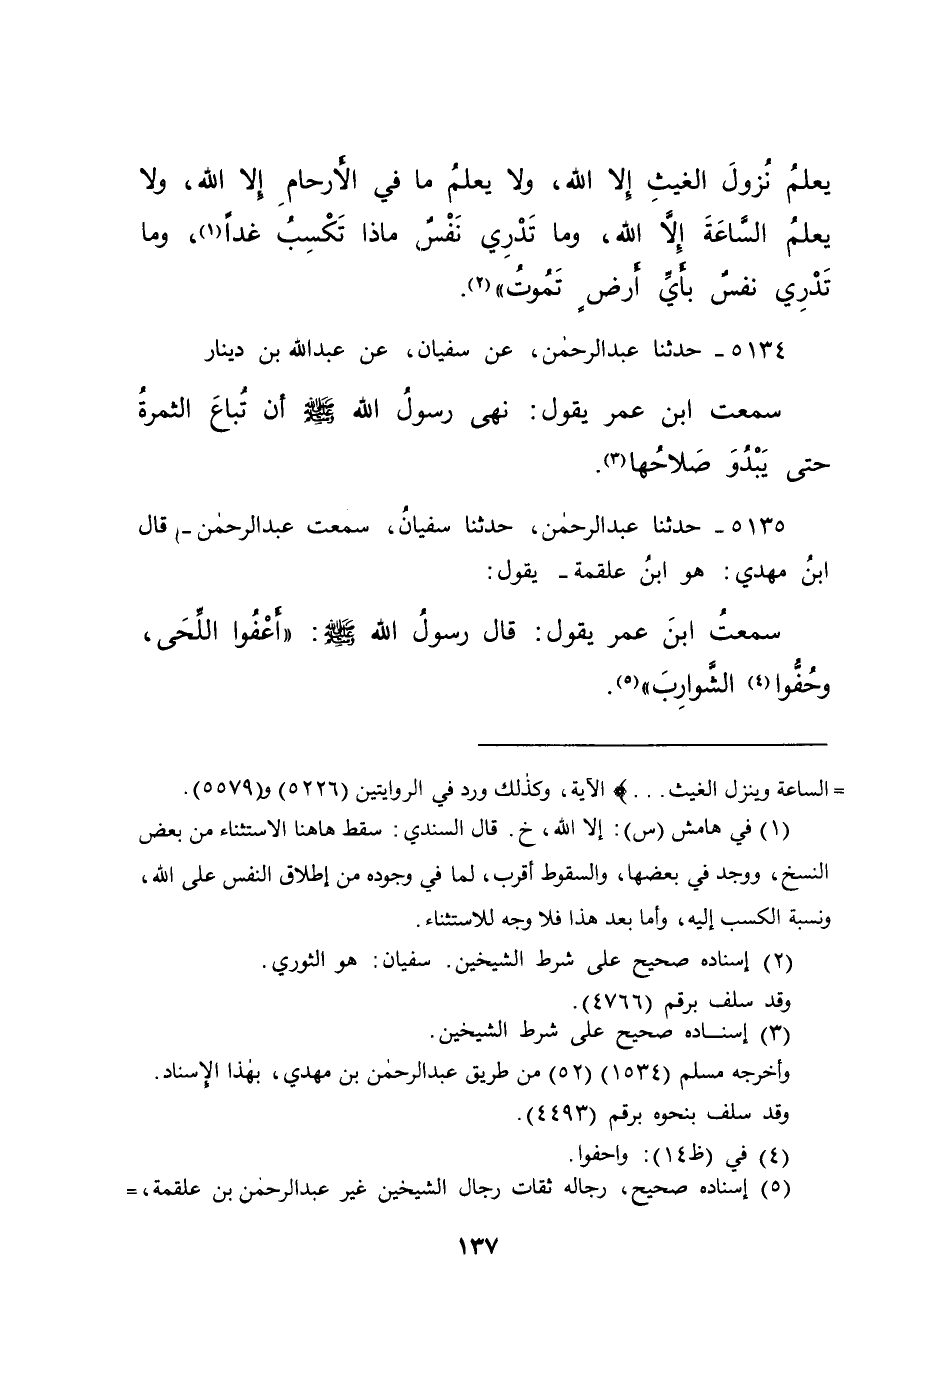 يعلمُ نُزولَ الغيثِ إلا الله، ولا يعلمُ ما في الأَرحامِ إِلا الله، ولا
يعلمُ السَّاعَةَ إِلَّا الله، وما تَدْرِي نَفْسٌ ماذا تَكْسِبُ غداً(١)، وما
تَدْرِي نفسٌ بأَيِّ أَرضٍ تَمُوتُ»(٢).
٥١٣٤ـ حدثنا عبدالرحمٰن، عن سفيان، عن عبدالله بن دينار
سمعت ابن عمر يقول: نهى رسولُ الله ﷺ أن تُباعَ الثمرةُ
حتى يَبْدُوَ صَلاحُها(٣).
٥١٣٥ـ حدثنا عبدالرحمٰن، حدثنا سفيانُ، سمعت عبدالرحمٰن ـ قال
ابنُ مهدي: هو ابنُ علقمة ـ يقول:
سمعتُ ابنَ عمر يقول: قال رسولُ الله ﷺ: «أَعْفُوا اللِّحَى،
وحُفُّوا(٤) الشَّوارِبَ»(٥).
= الساعة وينزل الغيث...﴾ الآية، وكذٰلك ورد في الروايتين (٥٢٢٦) و(٥٥٧٩).
(١) في هامش (س): إلا الله، خ. قال السندي: سقط هاهنا الاستثناء من بعض
النسخ، ووجد في بعضها، والسقوط أقرب، لما في وجوده من إطلاق النفس على الله،
ونسبة الكسب إليه، وأما بعد هذا فلا وجه للاستثناء.
(٢) إسناده صحيح على شرط الشيخين. سفيان: هو الثوري.
وقد سلف برقم (٤٧٦٦).
(٣) إسناده صحيح على شرط الشيخين.
وأخرجه مسلم (١٥٣٤) (٥٢) من طريق عبدالرحمٰن بن مهدي، بهٰذا الإِسناد.
وقد سلف بنحوه برقم (٤٤٩٣).
(٤) في (ظ١٤): واحفوا.
(٥) إسناده صحيح، رجاله ثقات رجال الشيخين غير عبدالرحمٰن بن علقمة، =
١٣٧